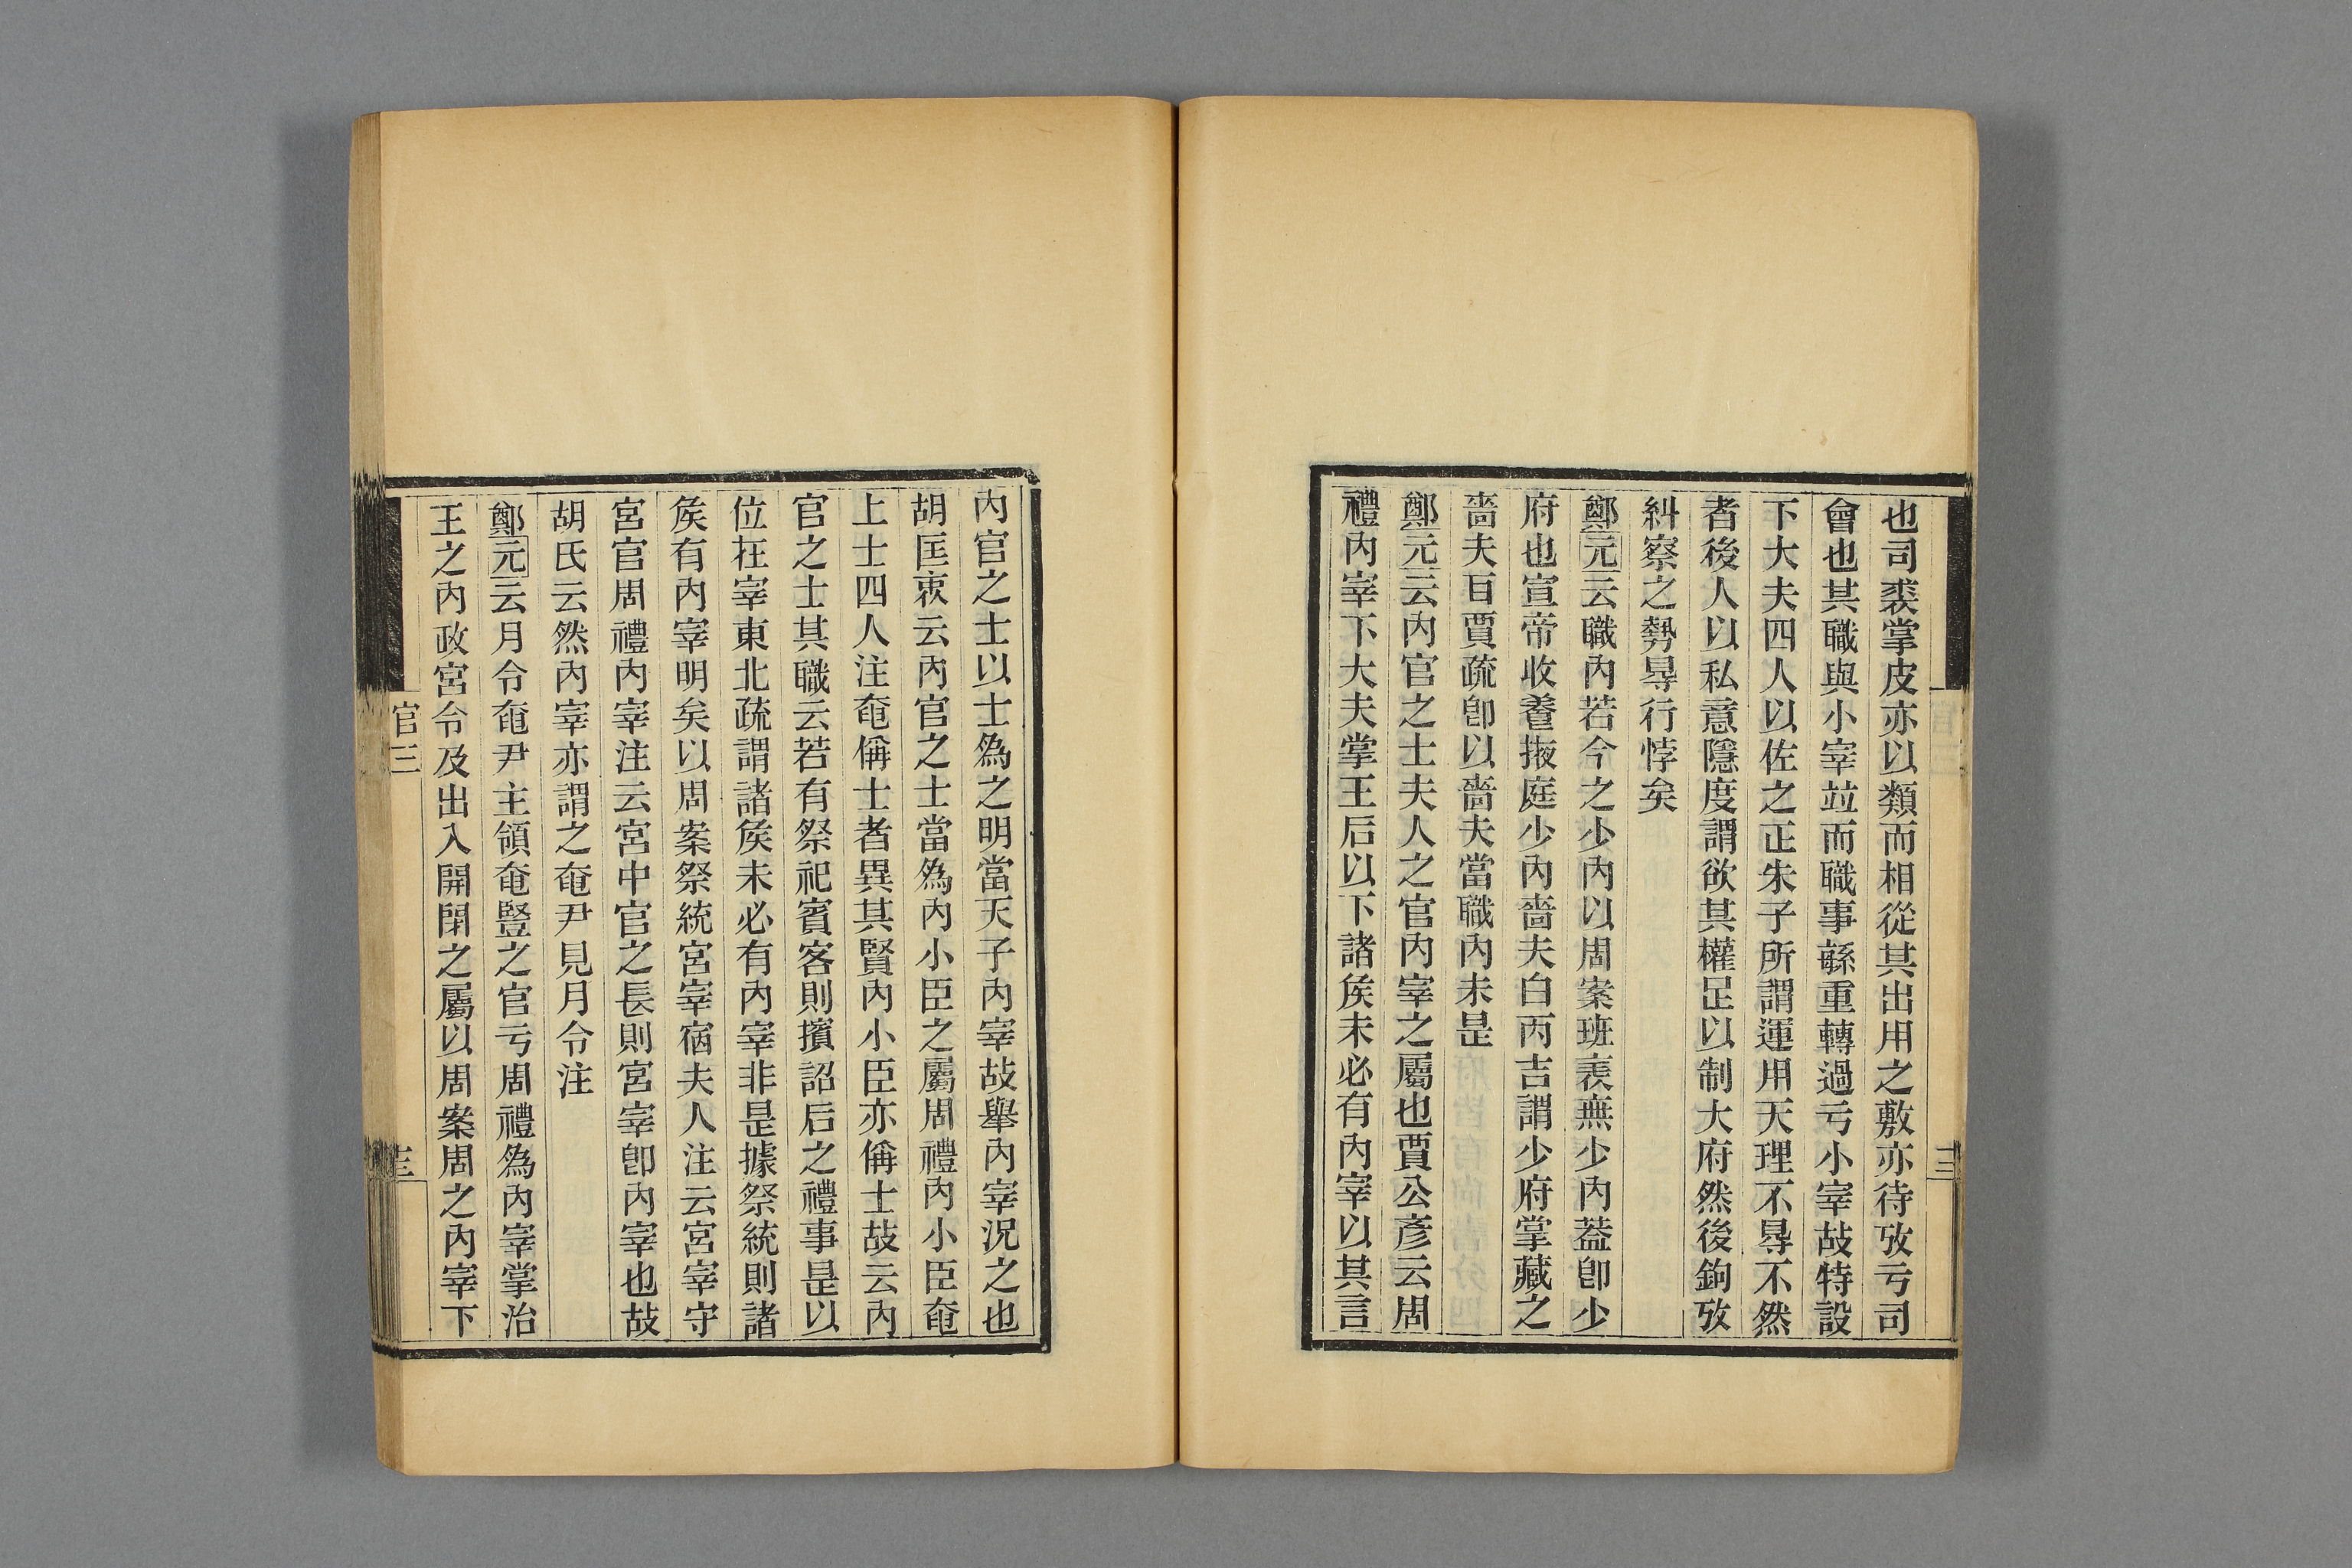 也司裘掌皮亦以類而相從其出用之敷亦待攷亏司
會也其職與小宰竝而職事緐重轉過亏小宰故特設
下大夫四人以佐之正朱子所謂運用天理不㝵不然
者後人以私意隱度謂欲其權足以制大府然後鉤攷
糾察之勢㝵行悖矣
鄭元云職內若今之少內以周案班表無少內葢卽少
府也宣帝收養掖庭少內嗇夫白丙吉謂少府掌藏之
嗇夫百賈疏卽以嗇夫當職內未是
鄭元云內官之士夫人之官內宰之屬也賈公彥云周
禮內宰下大夫掌王后以下諸矦未必有內宰以其言
內官之士以士為之明當天子內宰故舉內宰況之也
胡匡衷云內官之士當為內小臣之屬周禮內小臣奄
上士四人注奄偁士者異其賢內小臣亦偁士故云內
官之士其職云若有祭祀賓客則擯詔后之禮事是以
位在宰東北疏謂諸矦未必有內宰非是據祭統則諸
矦有內宰明矣以周案祭統宮宰宿夫人注云宮宰守
宮官周禮內宰注云宮中官之長則宮宰卽內宰也故
胡氏云然內宰亦謂之奄尹見月令注
鄭元云月令奄尹主領奄豎之官亏周禮為內宰掌治
王之內政宮令及出入開閉之屬以周案周之內宰下
官三